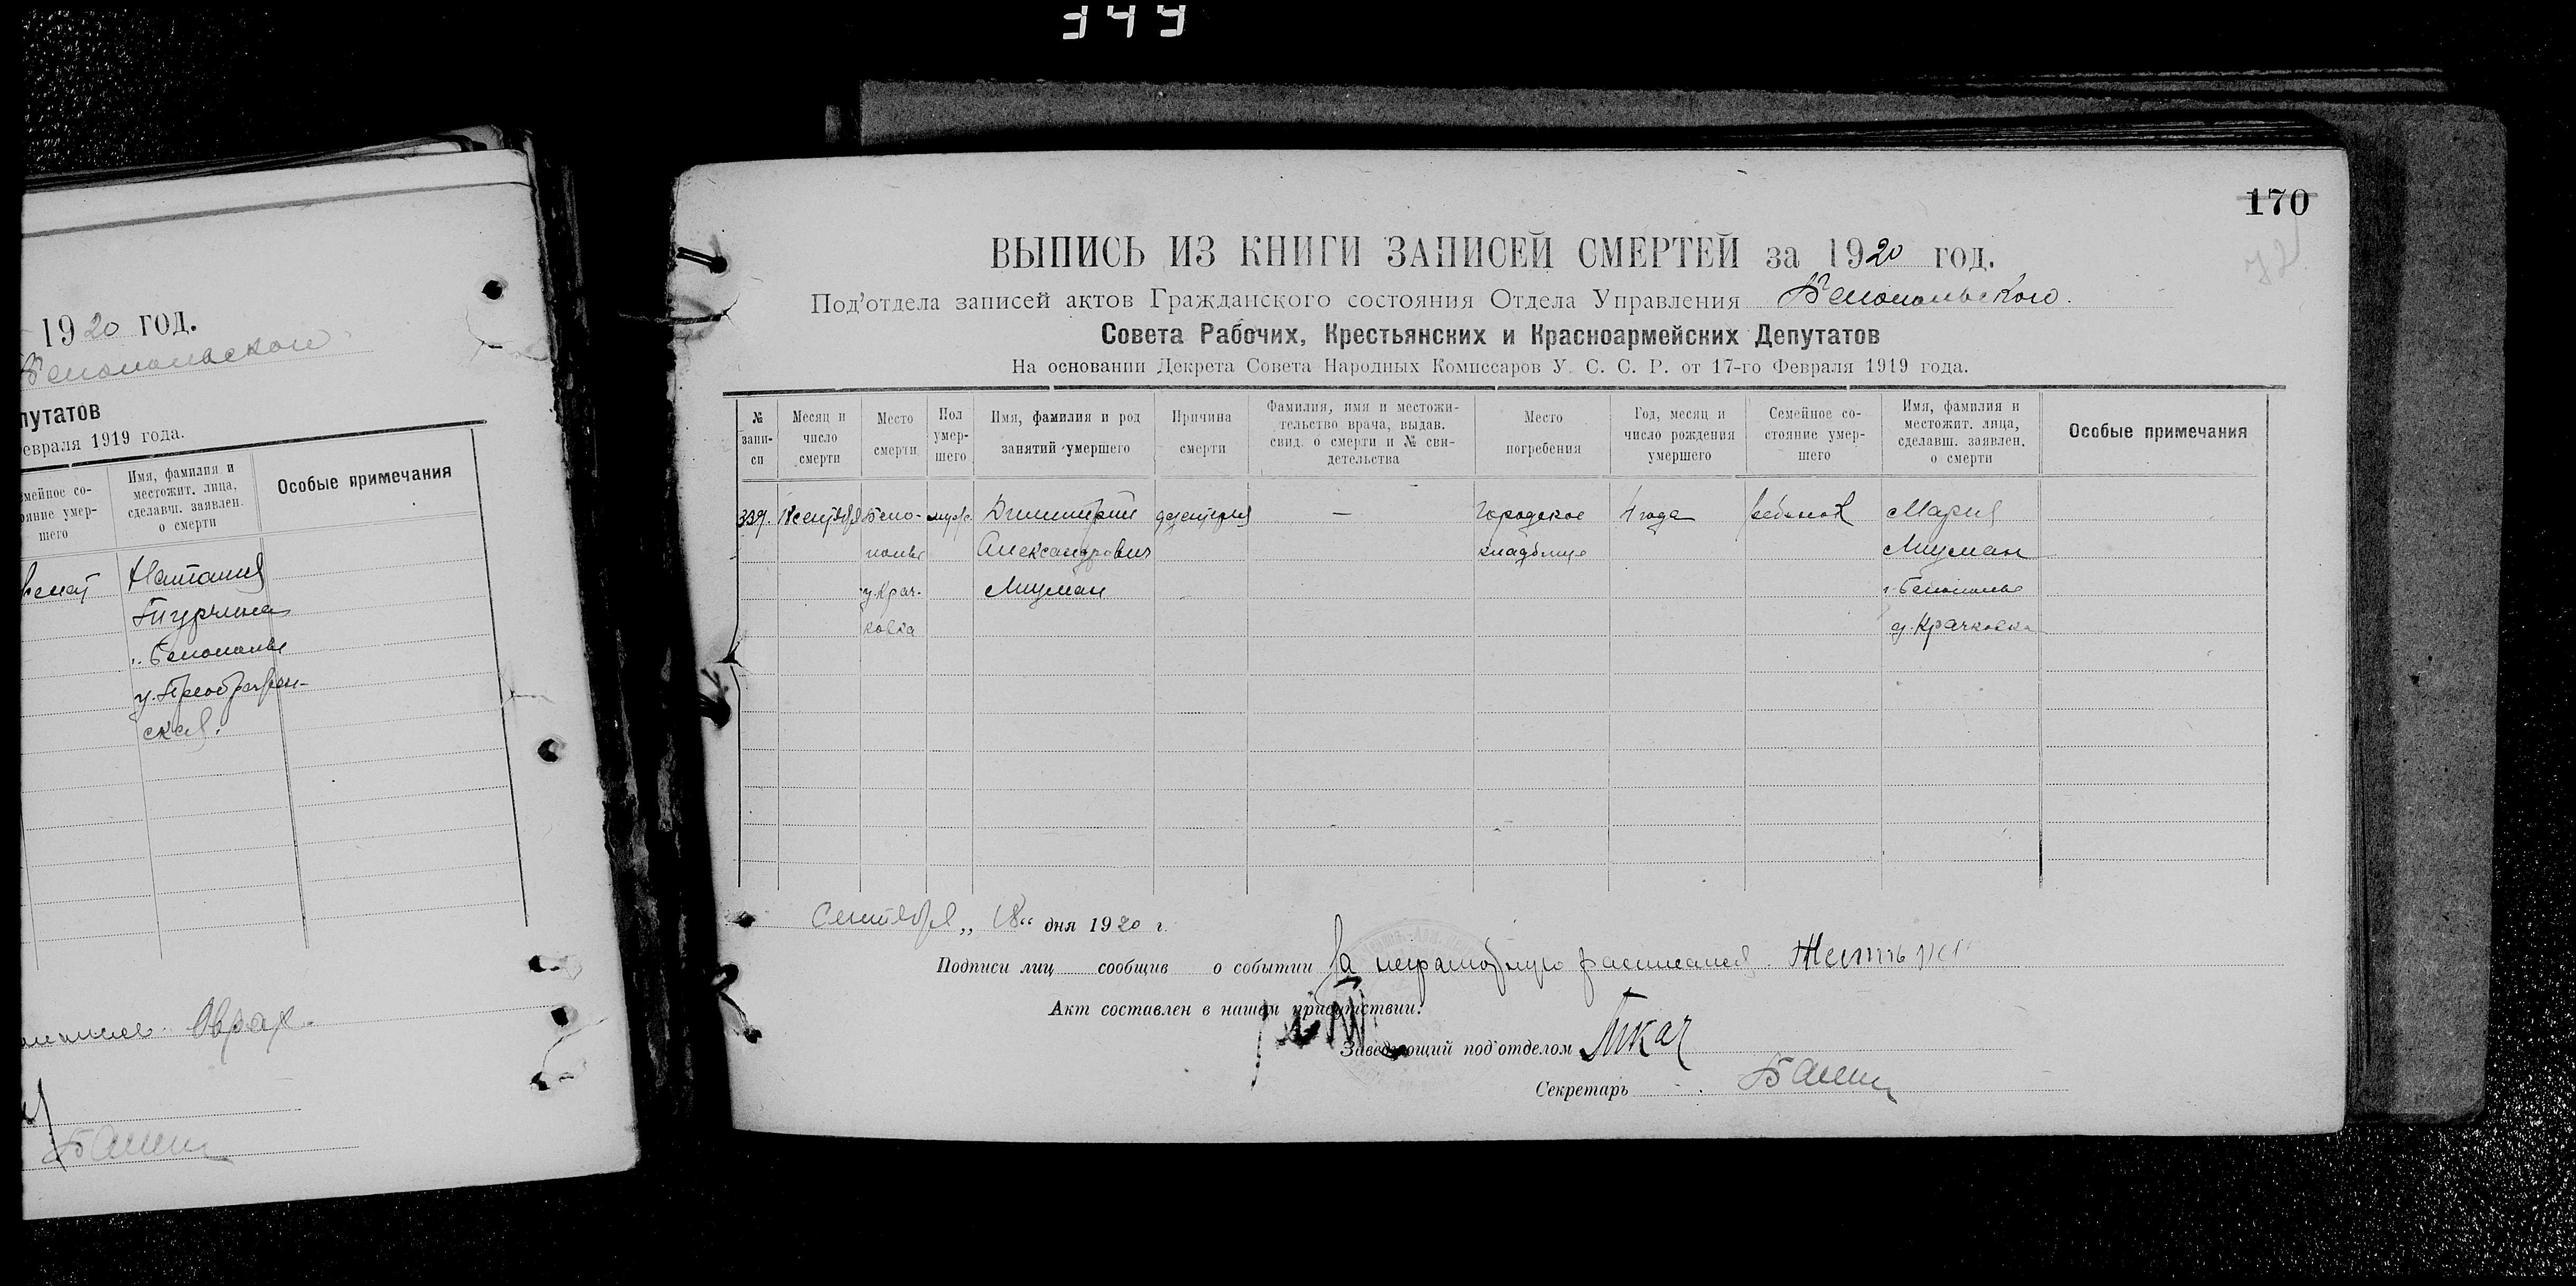 344
1920 год.
Белопольского
путатов
евраля 1919 года.
мейное со-
ояние умер-
шего
Имя, фамилия и
местожит. лица,
сделавш. заявлен.
о смерти
Особые примечания
Наталия
г. Белополье
у. Преображен-
ская.
170
72
ВЫПИСЬ ИЗ КНИГИ ЗАПИСЕЙ СМЕРТЕЙ за 1920 год.
Под'отдела записей актов Гражданского состояния Отдела Управления Белопольского.
Совета Рабочих, Крестьянских и Красноармейских Депутатов
На основании Декрета Совета Народных Комиссаров У. С. С. Р. от 17-го Февраля 1919 года.
№ запи-си
Месяц и число смерти
Место смерти
Пол умер-шего
Имя, фамилия и род занятий умершего
Причина смерти
Фамилия, имя и местожи-тельство врача, выдав. свид. о смерти и № сви-детельства
Место погребения
Год, месяц и число рождения умершего
Семейное со-стояние умер-шего
Имя, фамилия и местожит. лица, сделавш. заявлен. о смерти
Особые примечания
сентября Бело- муж. Димитрий дезентерия — Городское 4 года ребенок Мария
полье Александрович кладбище Мицман
у. Крач- Мицман г. Белополье
ковка у. Крачковка
Сентября „18“ дня 1920 г.
Подписи лиц сообщив о событии За неграмотную расписался
Акт составлен в нашем присутствии:
Заведующий под'отделом Ткач
Секретарь